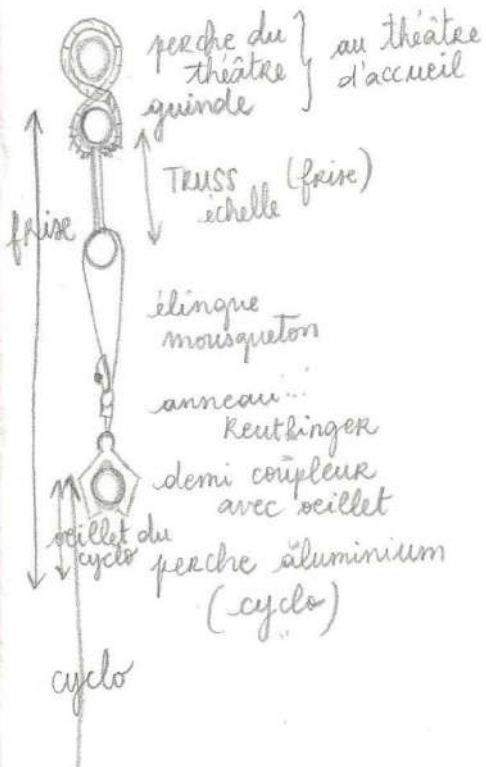 perche du
théâtre
guinde
au théâtre
d'accueil
TRUSS (frise)
échelle
frise
élingue
mousqueton
anneau
Reutlinger
demi coupleur
avec oeillet
oeillet du
cyclo
perche aluminium
(cyclo)
cyclo